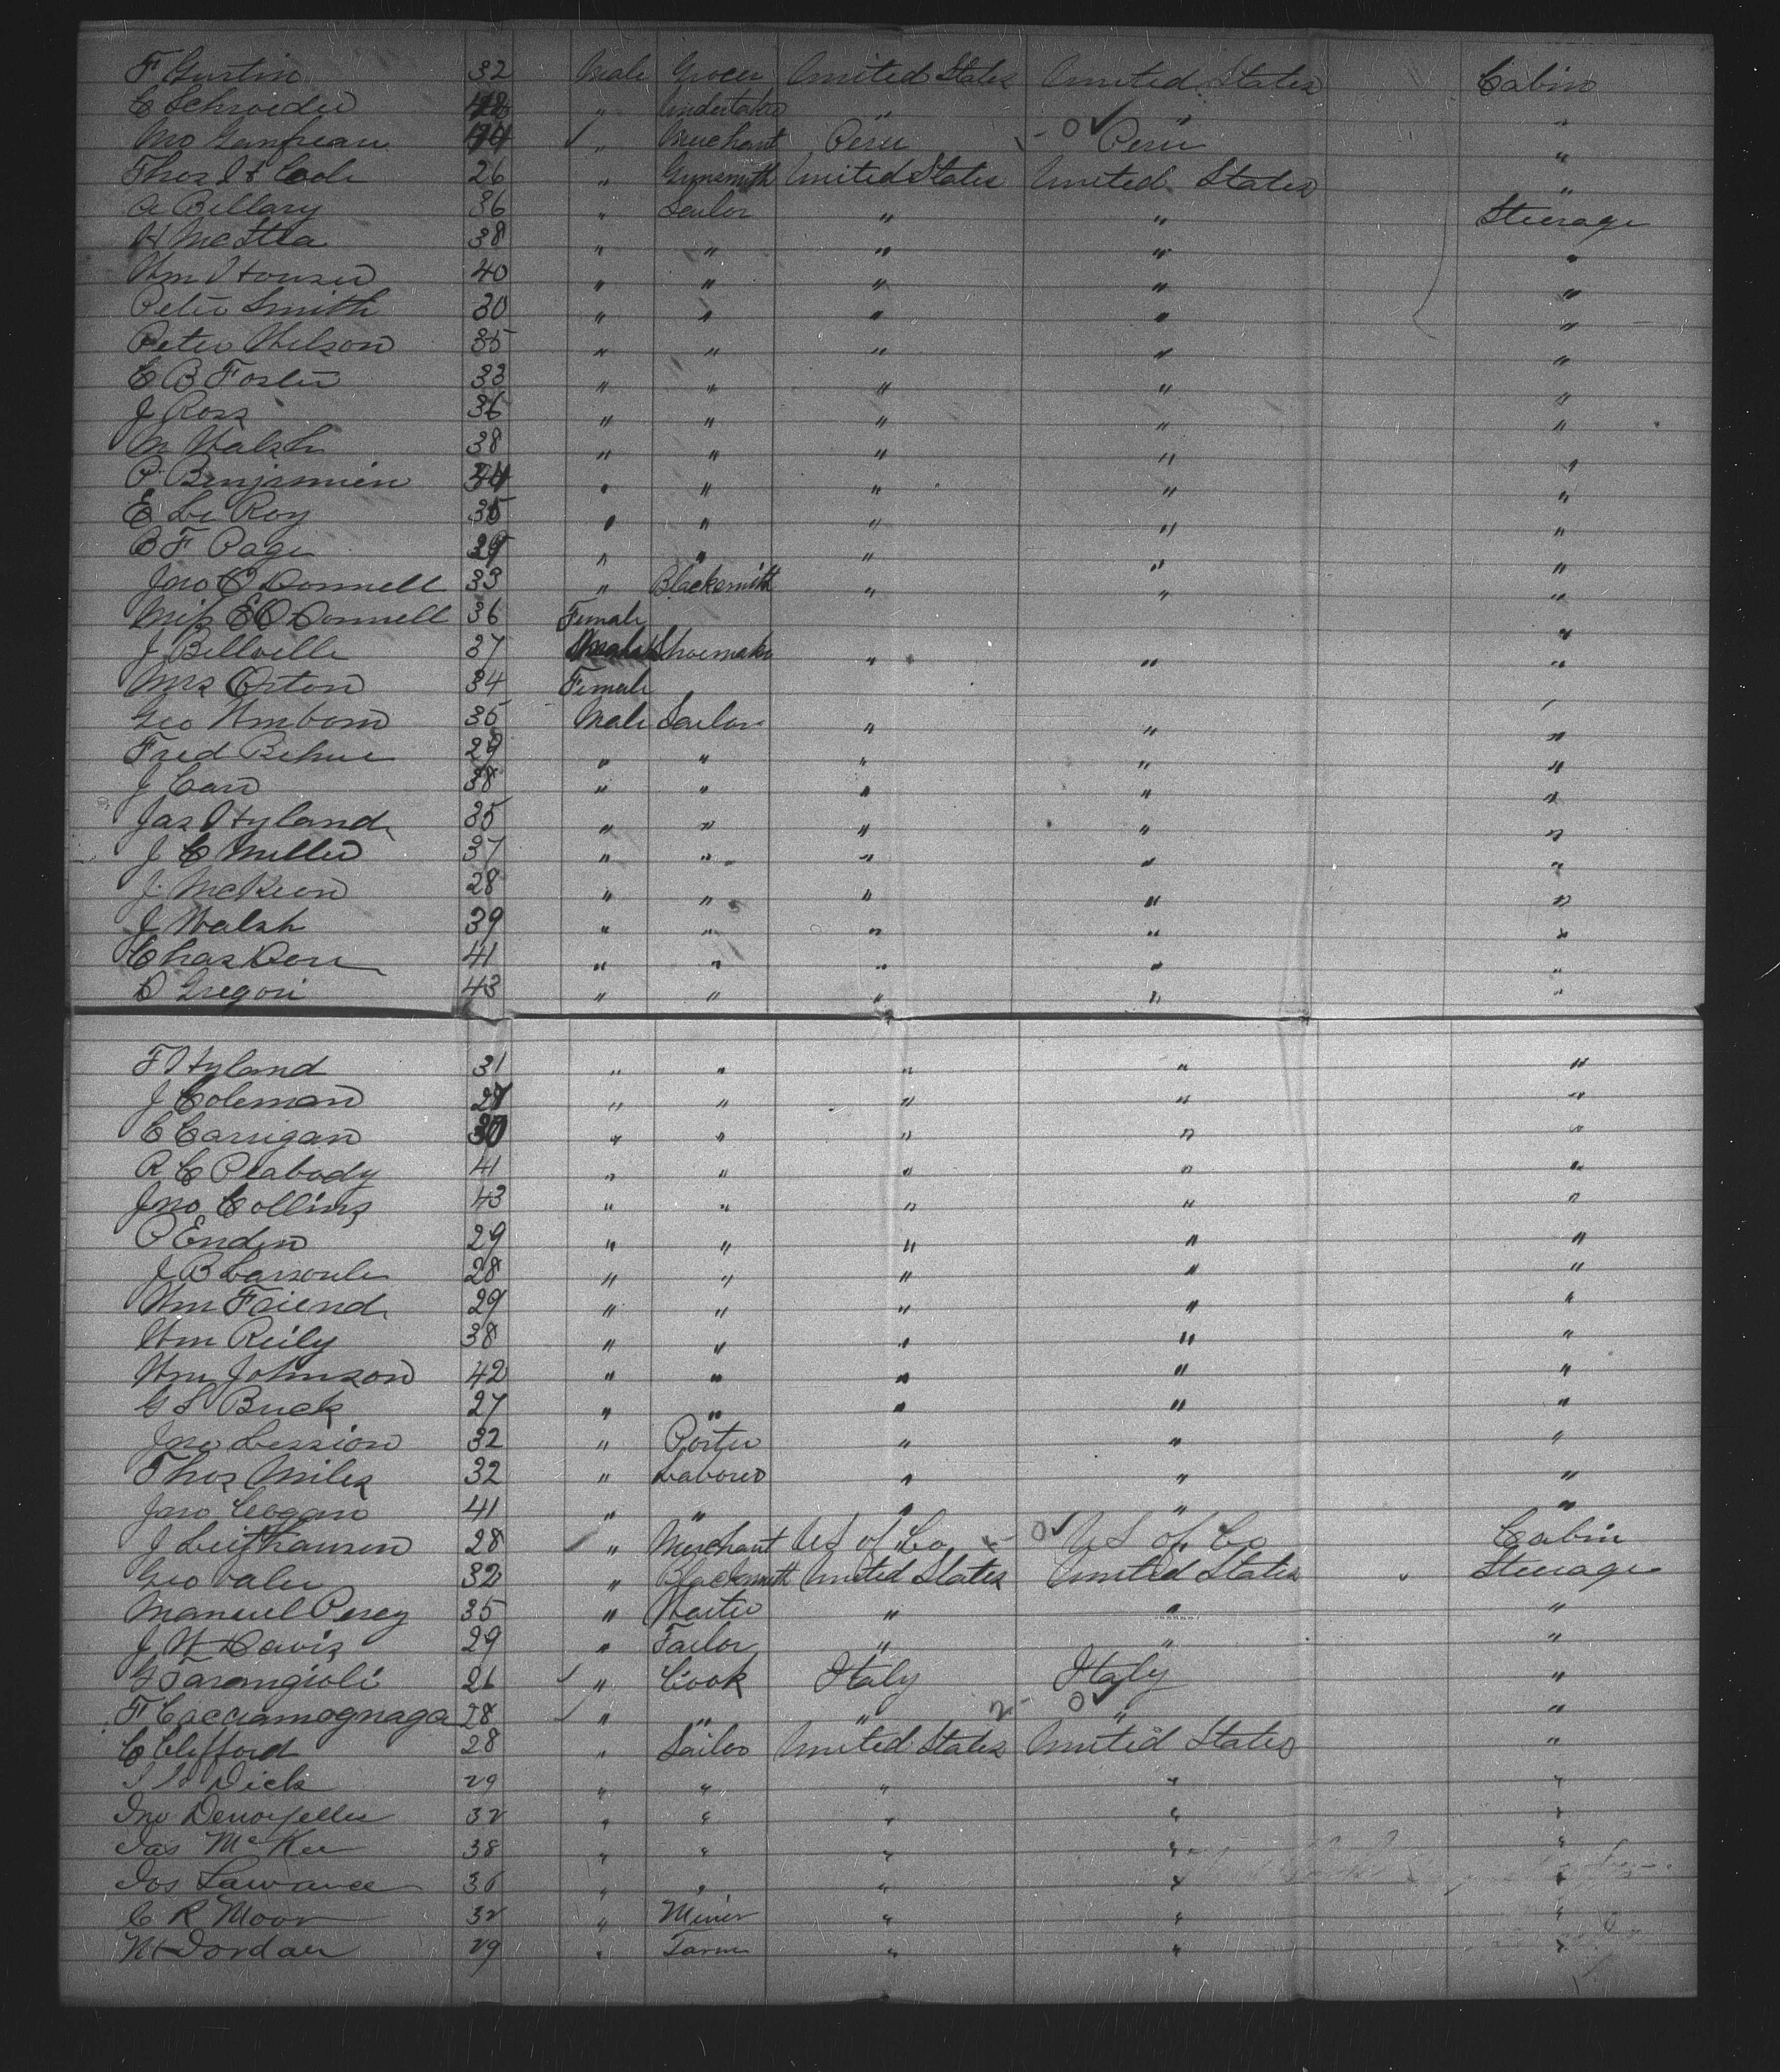 F Gustin 32 Male Grocer United States United States Cabin
C Schroeder 48 " Undertaker " " "
Peru " Merchant Peru "
Thos H Cook 26 " Gunsmith United States United States "
A Bellary 36 " Sailor " " Steerage
H McStea 38 " " " " "
Wm Houser 40 " " " " "
Peter Smith 30 " " " " "
Peter Wilson 35 " " " " "
C B Foster 33 " " " " "
J Ross 36 " " " " "
M Walsh 38 " " " " "
P Benjamien 34 " " " " "
E Le Roy 35 " " " " "
B F Page 29 " " " " "
Jno O'Donnell 33 " Blacksmith " " "
Miss E O'Donnell 36 Female "
J Bellville 37 Male Shoemaker " " "
Mrs Orton 34 Female "
Geo 35 Male Sailor " " "
Fred Behne 29 " " " " "
J Carr 38 " " " " "
Jas Hyland 35 " " " " "
J C Miller 37 " " " " "
J. McKeon 28 " " " " "
J Walsh 39 " " " " "
Chas Dorr 41 " " " " "
D Gregori 43 " " " " "
F Hyland 31 " " " " "
J Coleman 27 " " " " "
C Carrigan 30 " " " " "
R C Peabody 41 " " " " "
Jno Collins 43 " " " " "
P Enden 29 " " " " "
J B 28 " " " " "
Wm Friend 29 " " " " "
Wm Reily 38 " " " " "
Wm Johnson 42 " " " " "
G S Buck 27 " " " " "
Jno Lession 32 " Porter " " "
Thos Miles 32 " Laborer " " "
Jno Cogan 41 " " " " "
J Leifhausen 28 " Merchant US of Co US of Co Cabin
Geo Valer 32 " Blacksmith United States United States Steerage
Manuel Perey 35 " Waiter " " "
J W Davis 29 " Tailor " " "
G Tarangioli 26 " Cook Italy Italy "
F Cacciamognaga 28 " " " " "
C Clifford 28 " Sailor United States United States "
Dick 29 " " " " "
Jno Denoyelles 32 " " " " "
Jas McKee 38 " " " " "
Jos Lawrance 36 " " " " "
C R Moor 32 " Miner " " "
W Jordan 29 " Farmr " " "